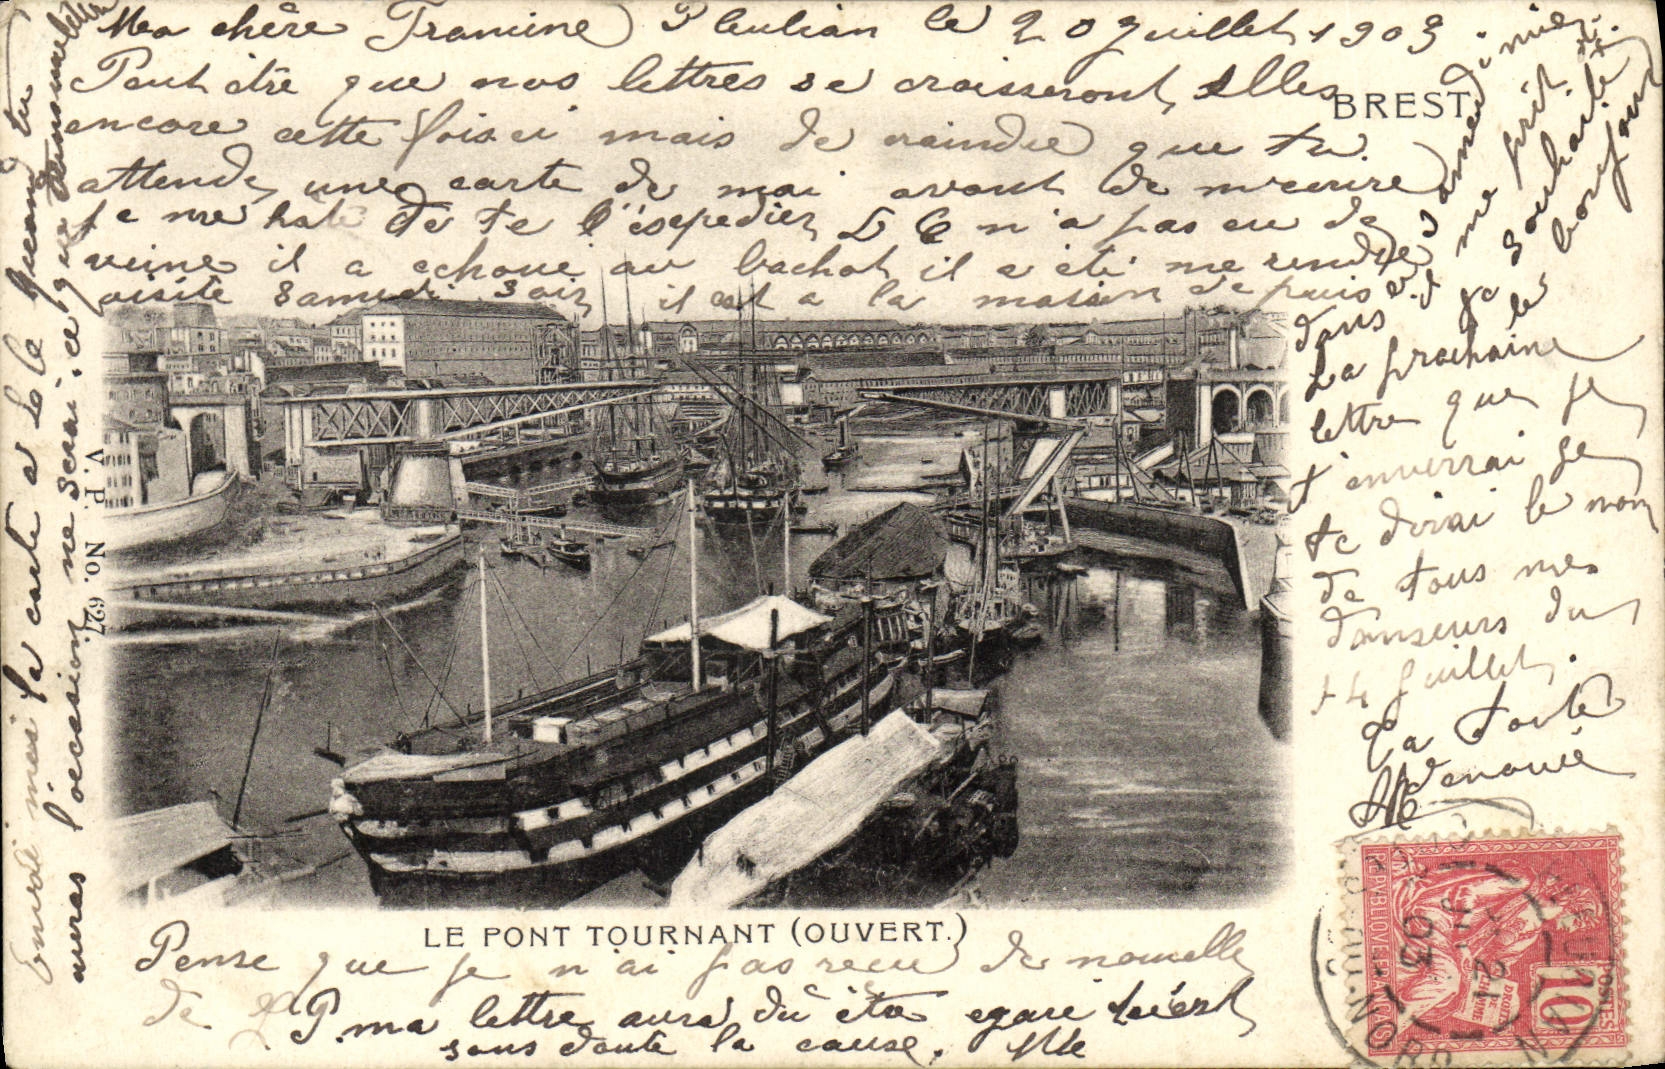 Ma chère Framine Pleubian le 20 juillet 1903
Peut être que nos lettres se croisseront, Elles
encore cette fois ci mais de craindre que tu
attende une carte de moi avant de m'ecrire
je me hate de te l'éxpedier, L C n'a pas eu de
veine il a echoue au bachot, il a été me rendre
visite samedi soir il est a la maison depuis
BREST.
La prochaine
lettre que je
t'enverrai je
te dirai le nom
de tous mes
danseurs du
14 juillet.
Ta toute
V. P. No. 627.
LE PONT TOURNANT (OUVERT.)
Pense que je n'ai pas recu de nouvelle
de P. ma lettre aura dû être egaré c'est
sans doute la cause.
Envoi moi la carte a le quand tu
auras l'occession, ne serai ce que
RÉPUBLIQUE FRANÇAISE
DROITS DE L'HOMME
POSTES
10
03